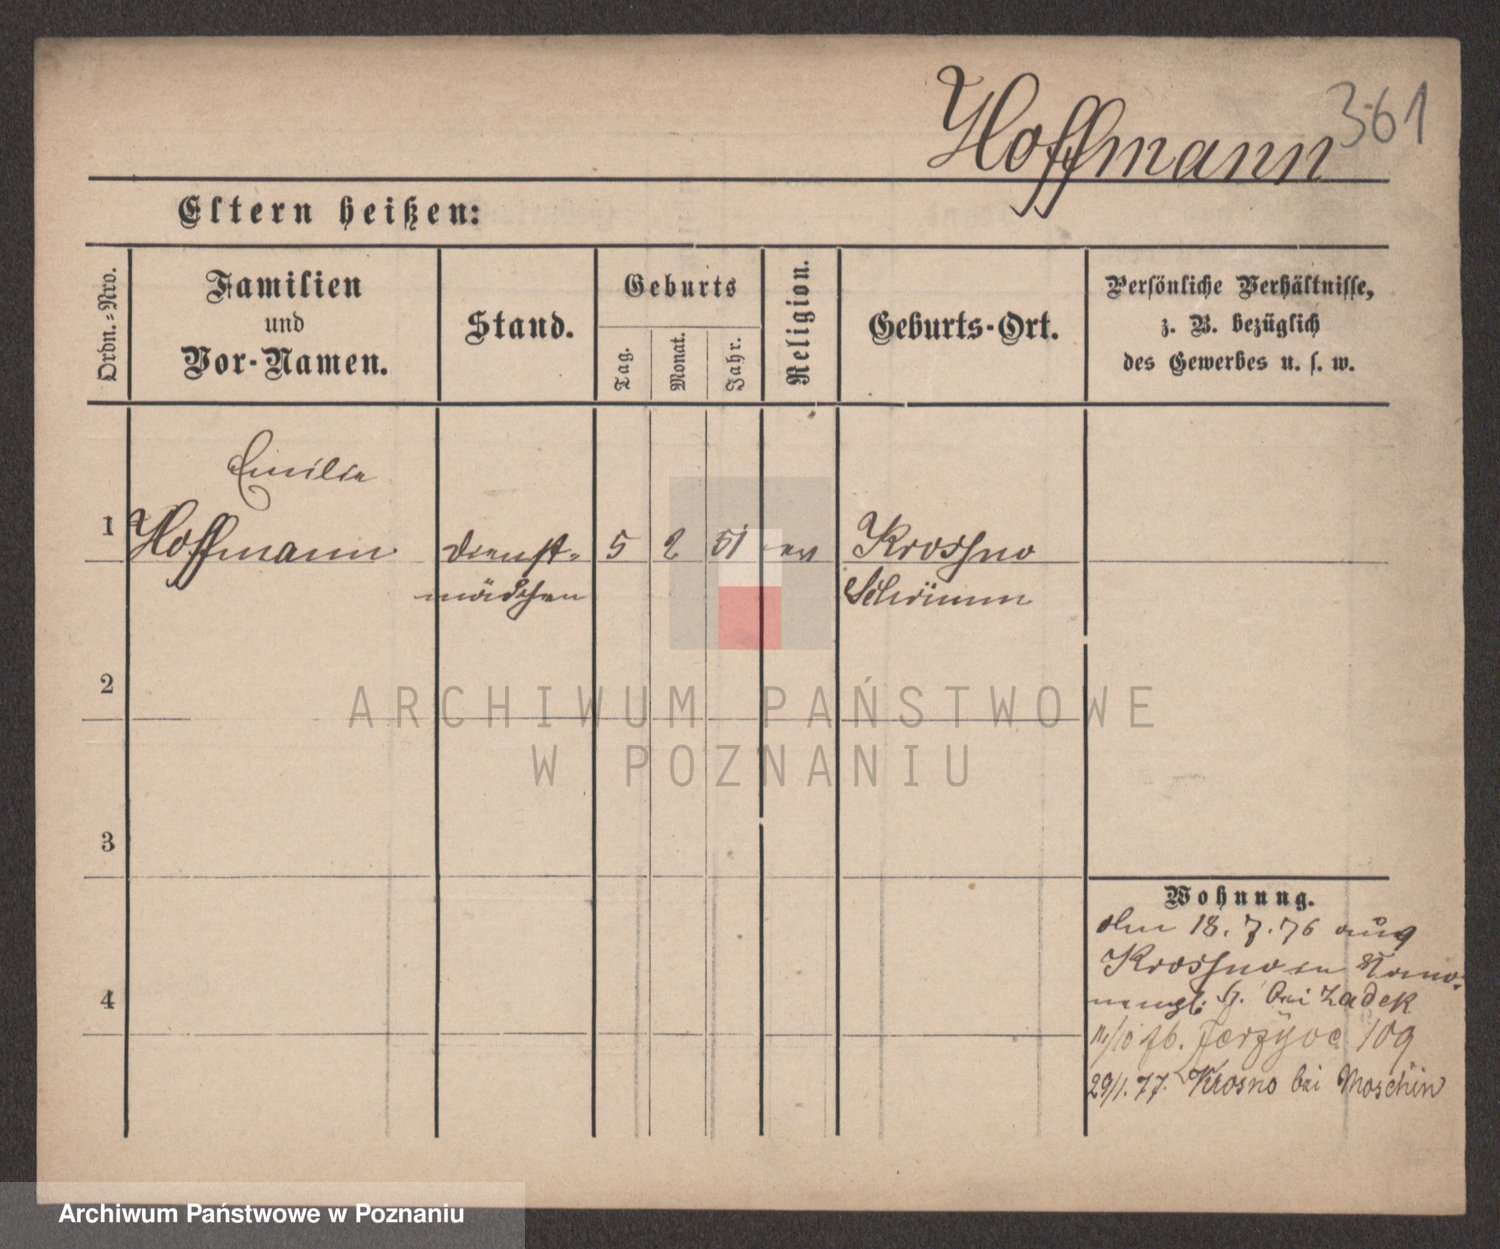 Hoffmann 361
Eltern heißen:
Ordn.-Nro.
Familien
und
Vor-Namen.
Stand.
Geburts
Tag.
Monat.
Jahr.
Religion.
Geburts-Ort.
Persönliche Verhältnisse,
z. B. bezüglich
des Gewerbes u. s. w.
Emilie
1 Hoffmann Dienst- 5 2 51 ev Krossno
mädchen Schrimm
2
ARCHIWUM PAŃSTWOWE
W POZNANIU
3
Wohnung.
den 18. 7. 76 aus
Krossno in
4 bei Zadek
11/10 76. Jerzyce 109
29/1. 77. Krosno bei Moschin
Archiwum Państwowe w Poznaniu